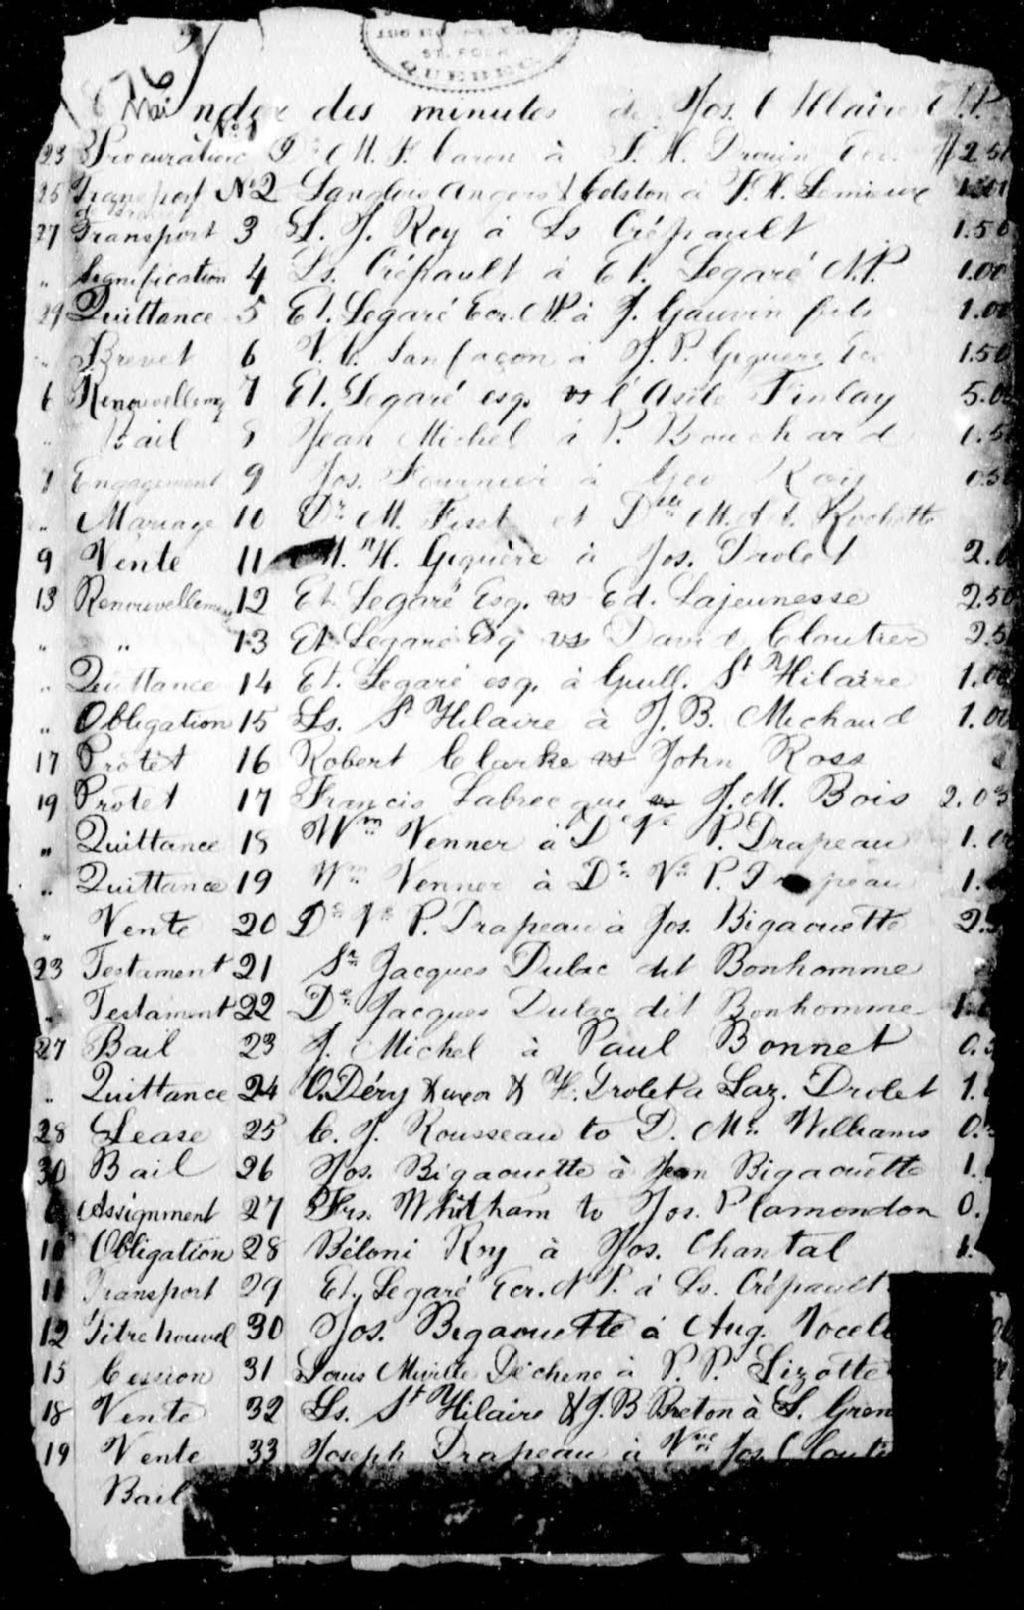 ST. ROCH
QUEBEC
1876
Mai ndex des minutes de Jos. C Hlaire N.P.
23 Procuration No. 1 De M. F. Caron à F. H. Drouin Ecr. $2.50
25 Transport No 2 Langlois Angers & Colston à F. H. Lemieux
27 Transport 3 L. J. Roy à Ls Crépault 1.50
" Signification 4 Ls. Crépault à Et. Legaré N.P. 1.00
29 Quittance 5 Et. Legaré Ecr. N.P. à J. Gauvin fils 1.00
" Brevet 6 V. C. Sanfaçon à J. P. Giguère Ecr 1.50
6 Renouvellemt 7 Et. Legaré esq. vs l'Asile Finlay 5.00
" Bail 8 Jean Michel à P. Bouchard 1.5
7 Engagement 9 Jos. Fournier à Geo Roy 0.5
" Mariage 10 Dr M. Fiset et Dlle M. Rochette
9 Vente 11 H. Giguère à Jos. Drolet 2.0
13 Renouvellement 12 Et. Legaré Esq. vs Ed. Lajeunesse 2.50
" " 13 Et Legaré Esq vs David Cloutier 2.5
" Quittance 14 Et. Legaré esq. à Guill. St Hilaire 1.00
" Obligation 15 Ls. St Hilaire à J. B. Michaud 1.00
17 Protêt 16 Robert Clarke vs John Ross
19 Protet 17 Francis Labrecque vs J. M. Bois 2.03
" Quittance 18 Wm Venner à De Ve P. Drapeau 1.
" Quittance 19 Wm Venner à De Ve P. Drapeau 1.
" Vente 20 De Ve P. Drapeau à Jos. Bigaouette 2.
23 Testament 21 Sr Jacques Dulac dit Bonhomme
" Testament 22 De Jacques Dulac dit Bonhomme 1.
27 Bail 23 J. Michel à Paul Bonnet 0.
" Quittance 24 O. Déry & uxor & H. Drolet à Laz. Drolet 1.
28 Lease 25 C. J. Rousseau to D. Mc Williams 0.
30 Bail 26 Jos. Bigaouette à Jean Bigaouette 1.
Assignment 27 Frs. Whitham to Jos. Plamondon 0.
10 Obligation 28 Béloni Roy à Jos. Chantal 1.
11 Transport 29 Et. Legaré Ecr. N.P. à Ls. Crépault
12 Titre nouvel 30 Jos. Bigaouette à Aug.
15 Cession 31 Louis Miville Déchene à P. P. Lizotte
18 Vente 32 Ls. St Hilaire & J. B Breton à S. Gren
19 Vente 33 Joseph Drapeau à Vve Jos. Clouti
Bail